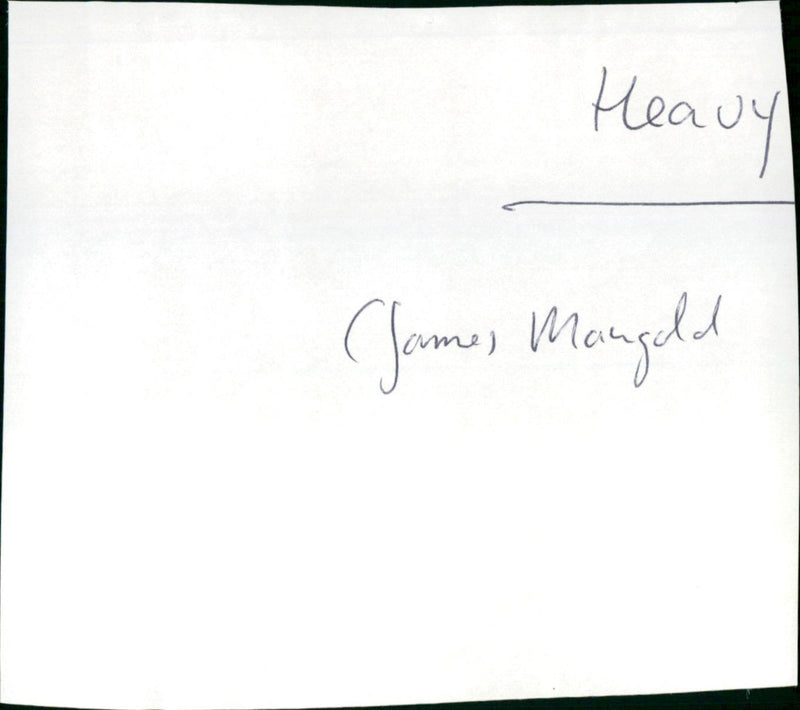 Heavy
(James Mangold